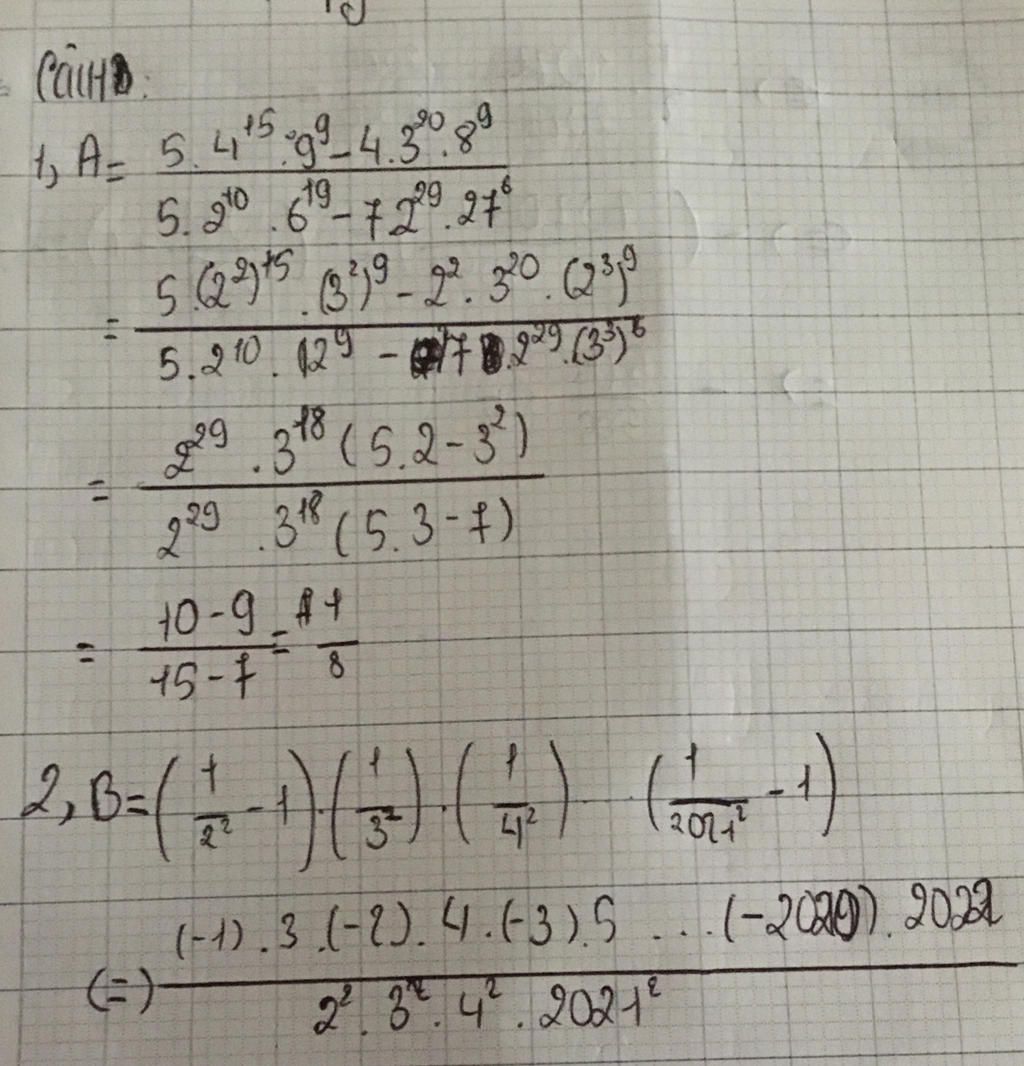 1, A = \frac{5.4^{15}.9^9 - 4.3^{20}.8^9}{5.2^{10}.6^{19} - 72^{29}.27^6}
= \frac{5.(2^2)^{15}.(3^2)^9 - 2^2.3^{20}.(2^3)^9}{5.2^{10}.12^9 - 7.2^{29}.(3^3)^6}
= \frac{2^{29}.3^{18}(5.2-3^2)}{2^{29}.3^{18}(5.3-7)}
= \frac{10-9}{15-7} = \frac{1}{8}
2, B = (\frac{1}{2^2} - 1).(\frac{1}{3^2}).(\frac{1}{4^2}) ... (\frac{1}{2021^2} - 1)
(=) \frac{(-1).3.(-2).4.(-3).5 ... (-2020).2022}{2^2.3^2.4^2.2021^2}